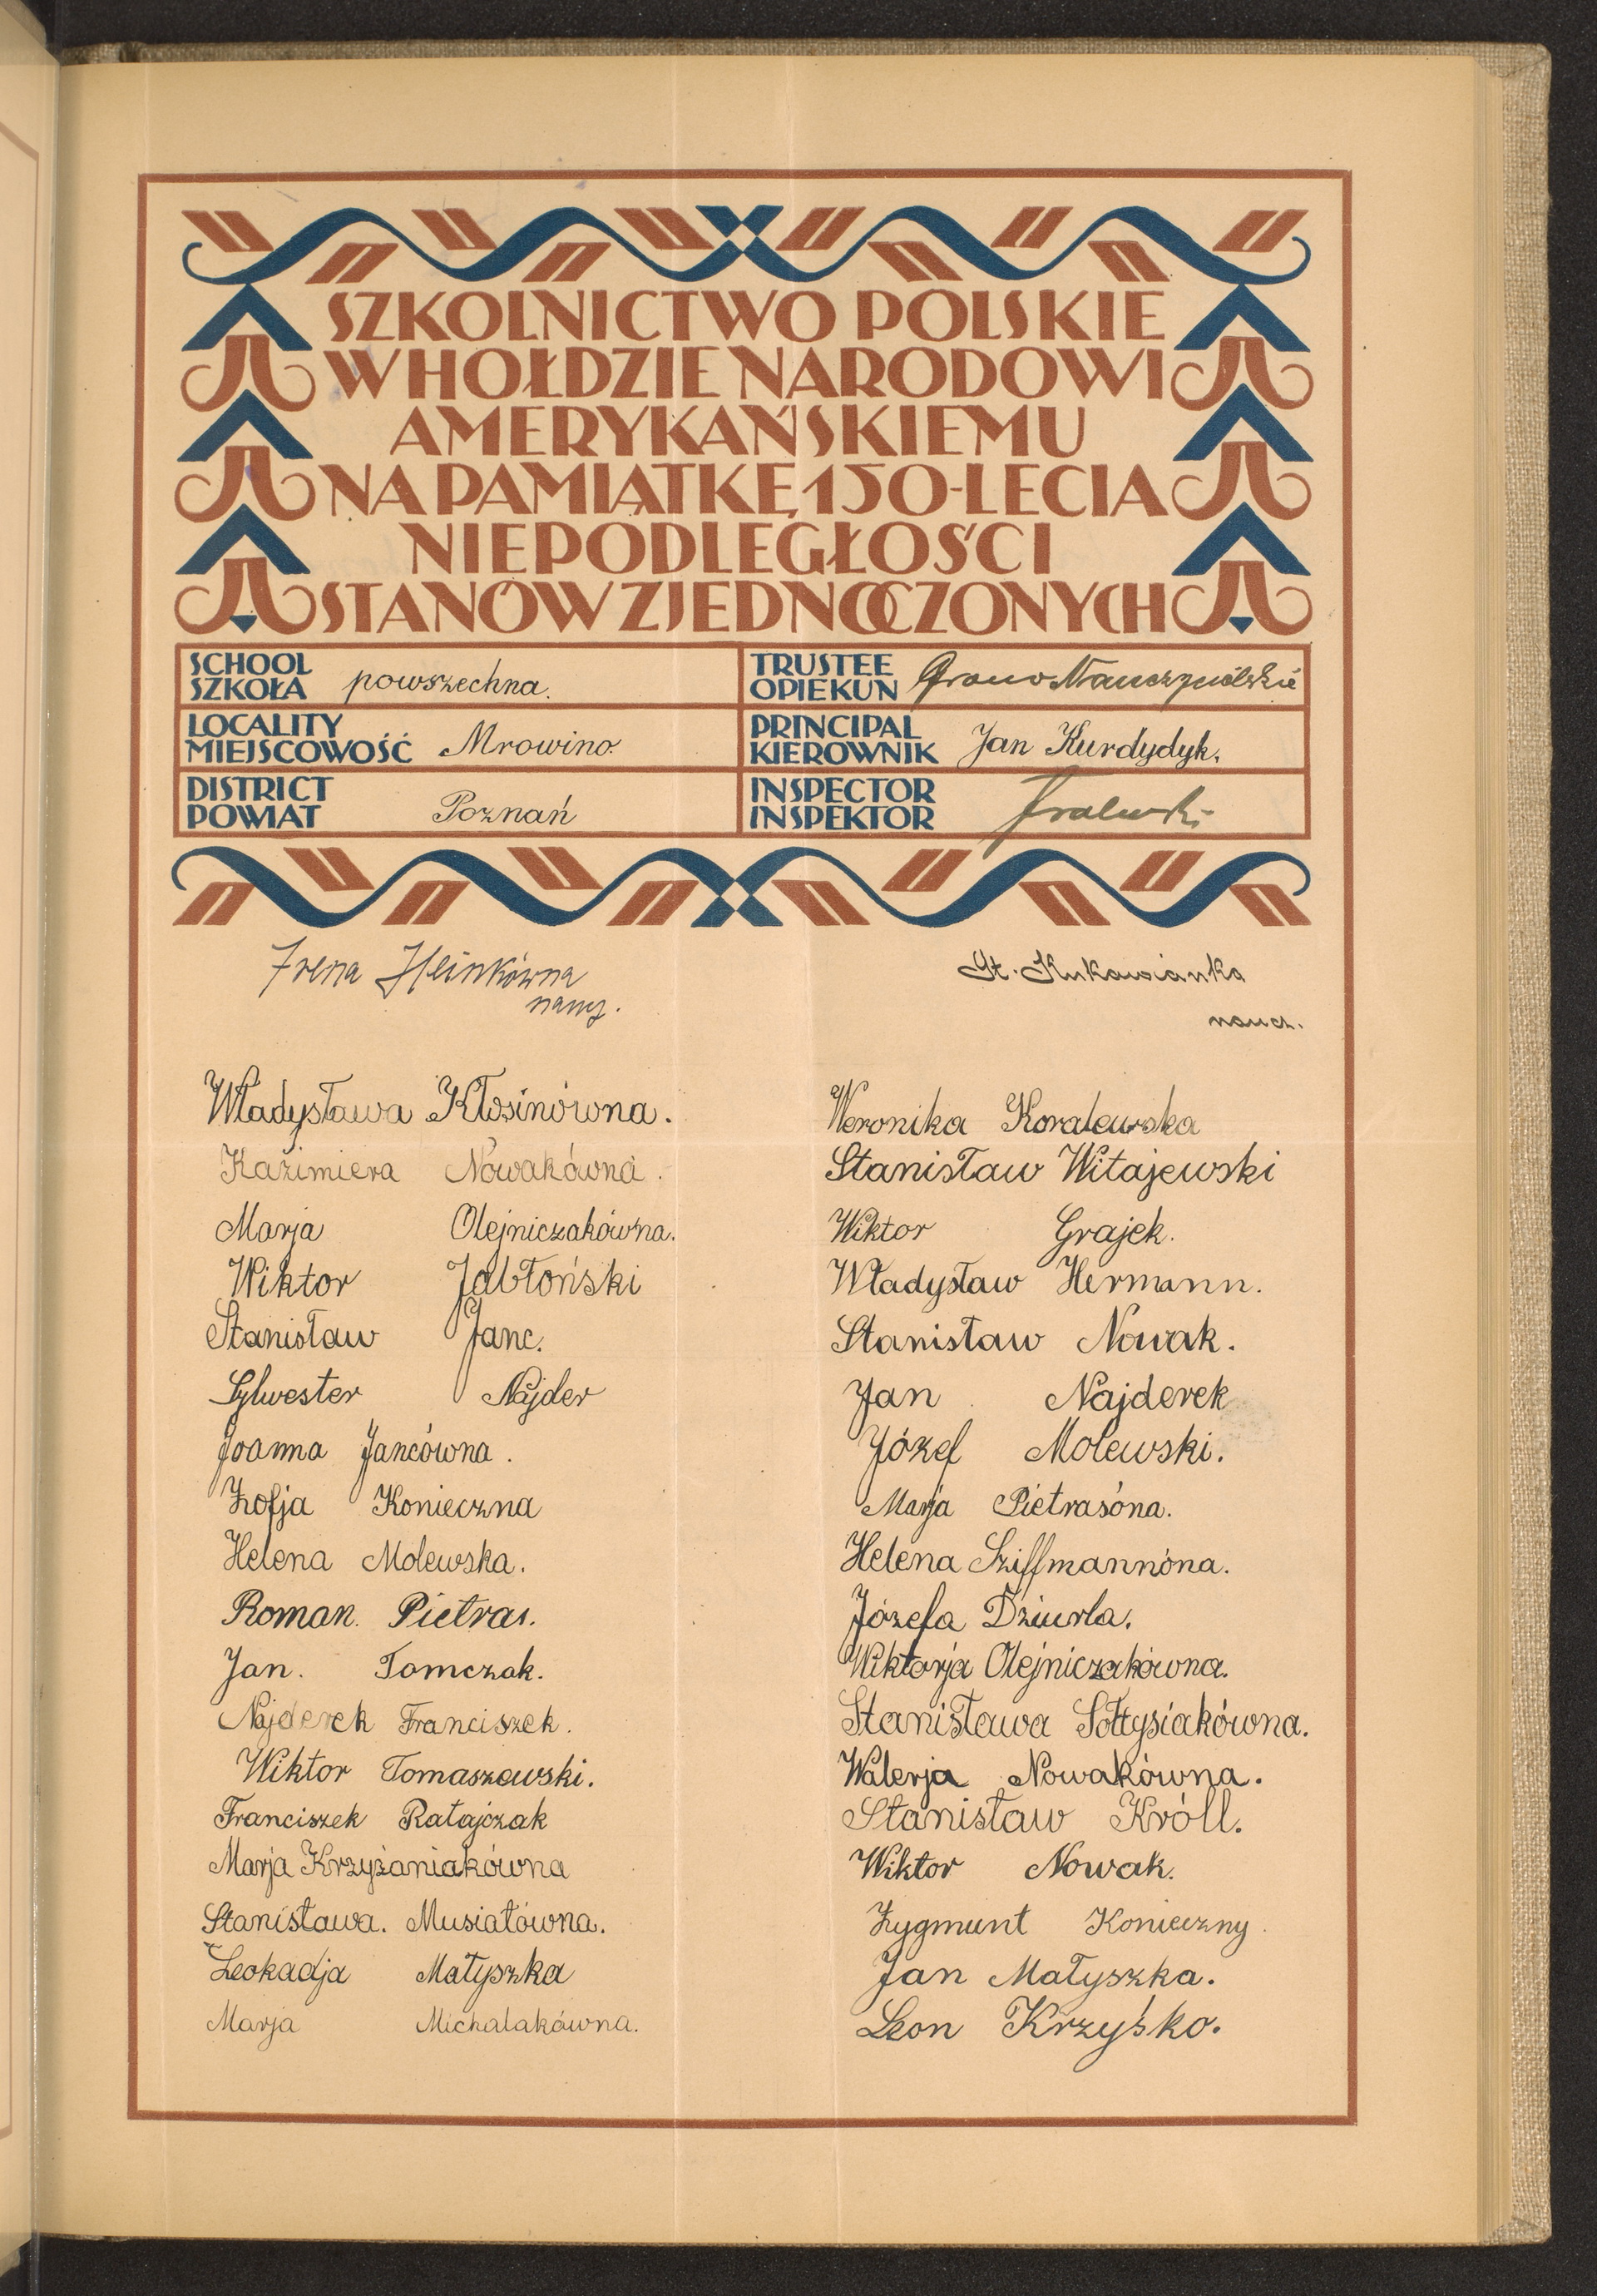 SZKOLNICTWO POLSKIE
W HOŁDZIE NARODOWI
AMERYKAŃSKIEMU
NA PAMIĄTKĘ 150-LECIA
NIEPODLEGŁOŚCI
STANÓW ZJEDNOCZONYCH
SCHOOL
SZKOŁA powszechna.
TRUSTEE
OPIEKUN Grono Nauczycielskie
LOCALITY
MIEJSCOWOŚĆ Mrowino.
PRINCIPAL
KIEROWNIK Jan Kurdydyk.
DISTRICT
POWIAT Poznań
INSPECTOR
INSPEKTOR
Irena Heinkówna
naucz.
St. Kukawianka
naucz.
Władysława Kłosinówna.
Kazimiera Nowakówna.
Marja Olejniczakówna.
Wiktor Jabłoński
Stanisław Janc.
Sylwester Najder
Joanna Jancówna.
Zofja Konieczna
Helena Molewska.
Roman. Pietras.
Jan. Tomczak.
Najderek Franciszek.
Wiktor Tomaszewski.
Franciszek Ratajczak
Marja Krzyżaniakówna
Stanisława. Musiałówna.
Leokadja Matyszka
Marja Michalakówna.
Weronika Koralewska
Stanisław Witajewski
Wiktor Grajek.
Władysław Hermann.
Stanisław Nowak.
Jan Najderek
Józef Molewski.
Marja Pietrasóna.
Helena Sziffmannóna.
Józefa Dziurla.
Wiktorja Olejniczakówna.
Stanisława Sołtysiakówna.
Walerja Nowakówna.
Stanisław Króll.
Wiktor Nowak.
Zygmunt Konieczny.
Jan Matyszka.
Leon Krzyśko.